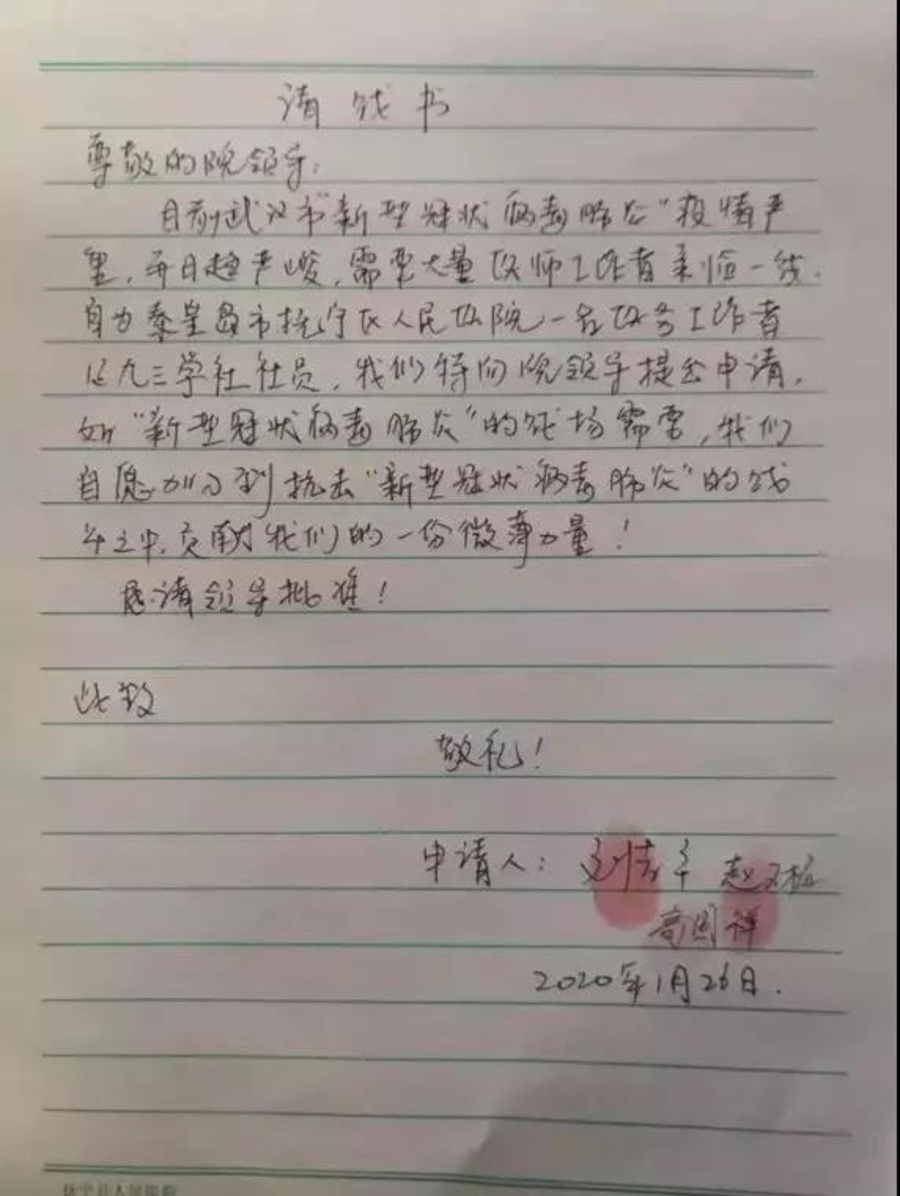 请战书
尊敬的院领导：
目前武汉市"新型冠状病毒肺炎"疫情严
重，每日趋严峻，需要大量医师工作者亲临一线。
身为秦皇岛市抚宁区人民医院一名医务工作者
以九三学社社员，我们特向院领导提出申请，
如"新型冠状病毒肺炎"的战场需要，我们
自愿加入到抗击"新型冠状病毒肺炎"的战
斗之中，贡献我们的一份微薄力量！
恳请领导批准！
此致
敬礼！
申请人：
高国祥
2020年1月26日.
抚宁县人民医院